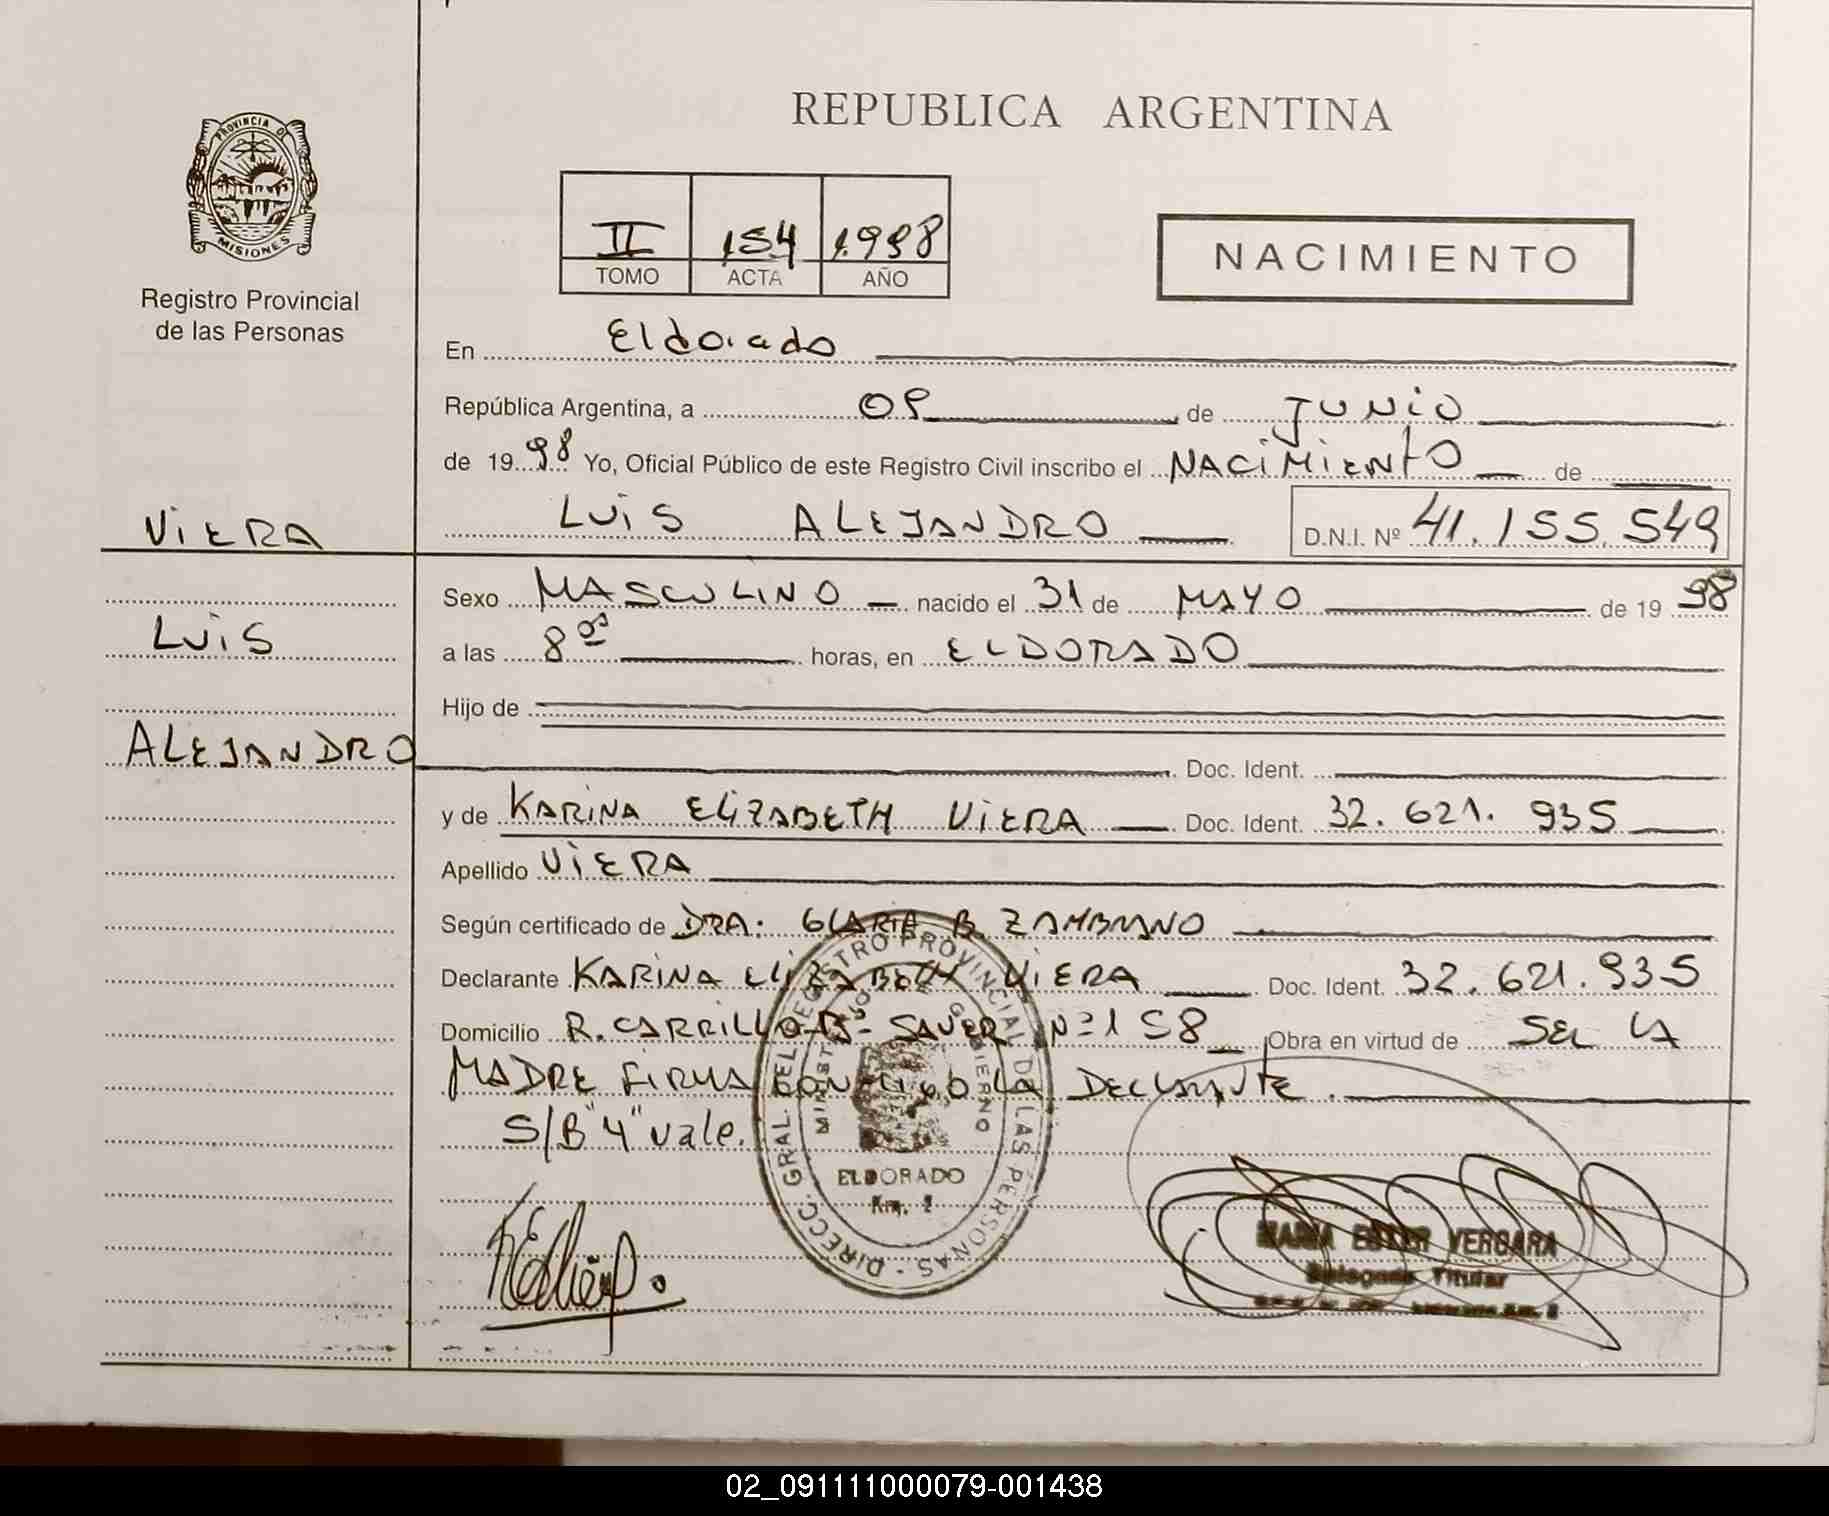 REPUBLICA ARGENTINA
PROVINCIA DE
MISIONES
Registro Provincial
de las Personas
II 154 1.998
TOMO ACTA AÑO
NACIMIENTO
En Eldorado
República Argentina, a 09 de JUNiO
de 1998 Yo, Oficial Público de este Registro Civil inscribo el NACiMiENTO de
LUiS ALEJANDRO D.N.I. Nº 41.155.549
ViERA
LUiS
ALEJANDRO
Sexo MASCULINO nacido el 31 de MAYO de 1998
a las 8 horas, en ELDORADO
Hijo de
Doc. Ident.
y de KARiNA ELiZABETH ViERA Doc. Ident. 32.621.935
Apellido ViERA
Según certificado de DRA: GLORIA B. ZAMBRANO
Declarante KARiNA ELiZABETH ViERA Doc. Ident. 32.621.935
Domicilio R. CARRILLO-B- SAUER Nº 158 Obra en virtud de SER LA
MADRE FIRMA CONMIGO LA DECLARANTE.
S/B "4" vale.
DIRECC. GRAL. DEL REGISTRO PROVINCIAL DE LAS PERSONAS
MINISTERIO DE GOBIERNO
ELDORADO
Km. 2
MARIA ESTER VERGARA
Delegada Titular
02_091111000079-001438